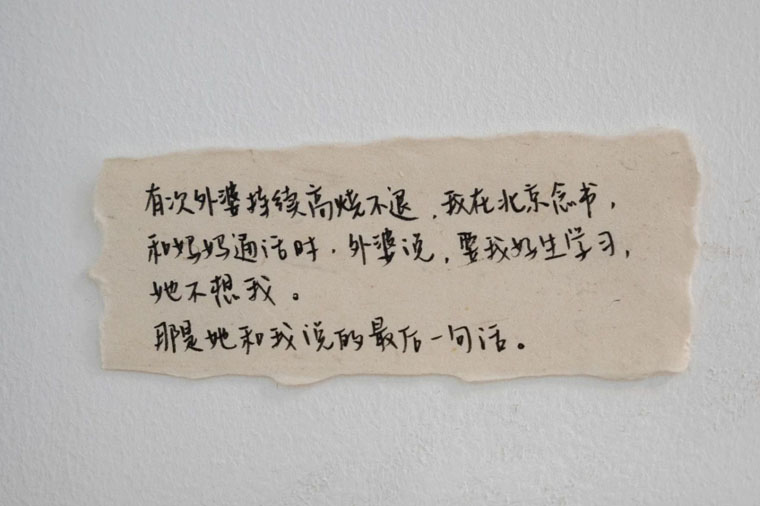 有次外婆持续高烧不退，我在北京念书，
和妈妈通话时，外婆说，要我好生学习，
她不想我。
那是她和我说的最后一句话。